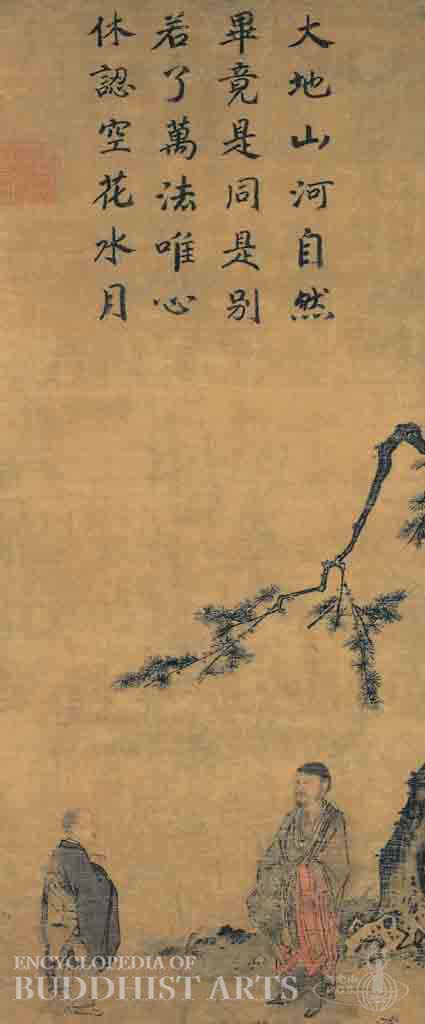 大地山河自然
畢竟是同是別
若了萬法唯心
休認空花水月
ENCYCLOPEDIA OF
BUDDHIST ARTS